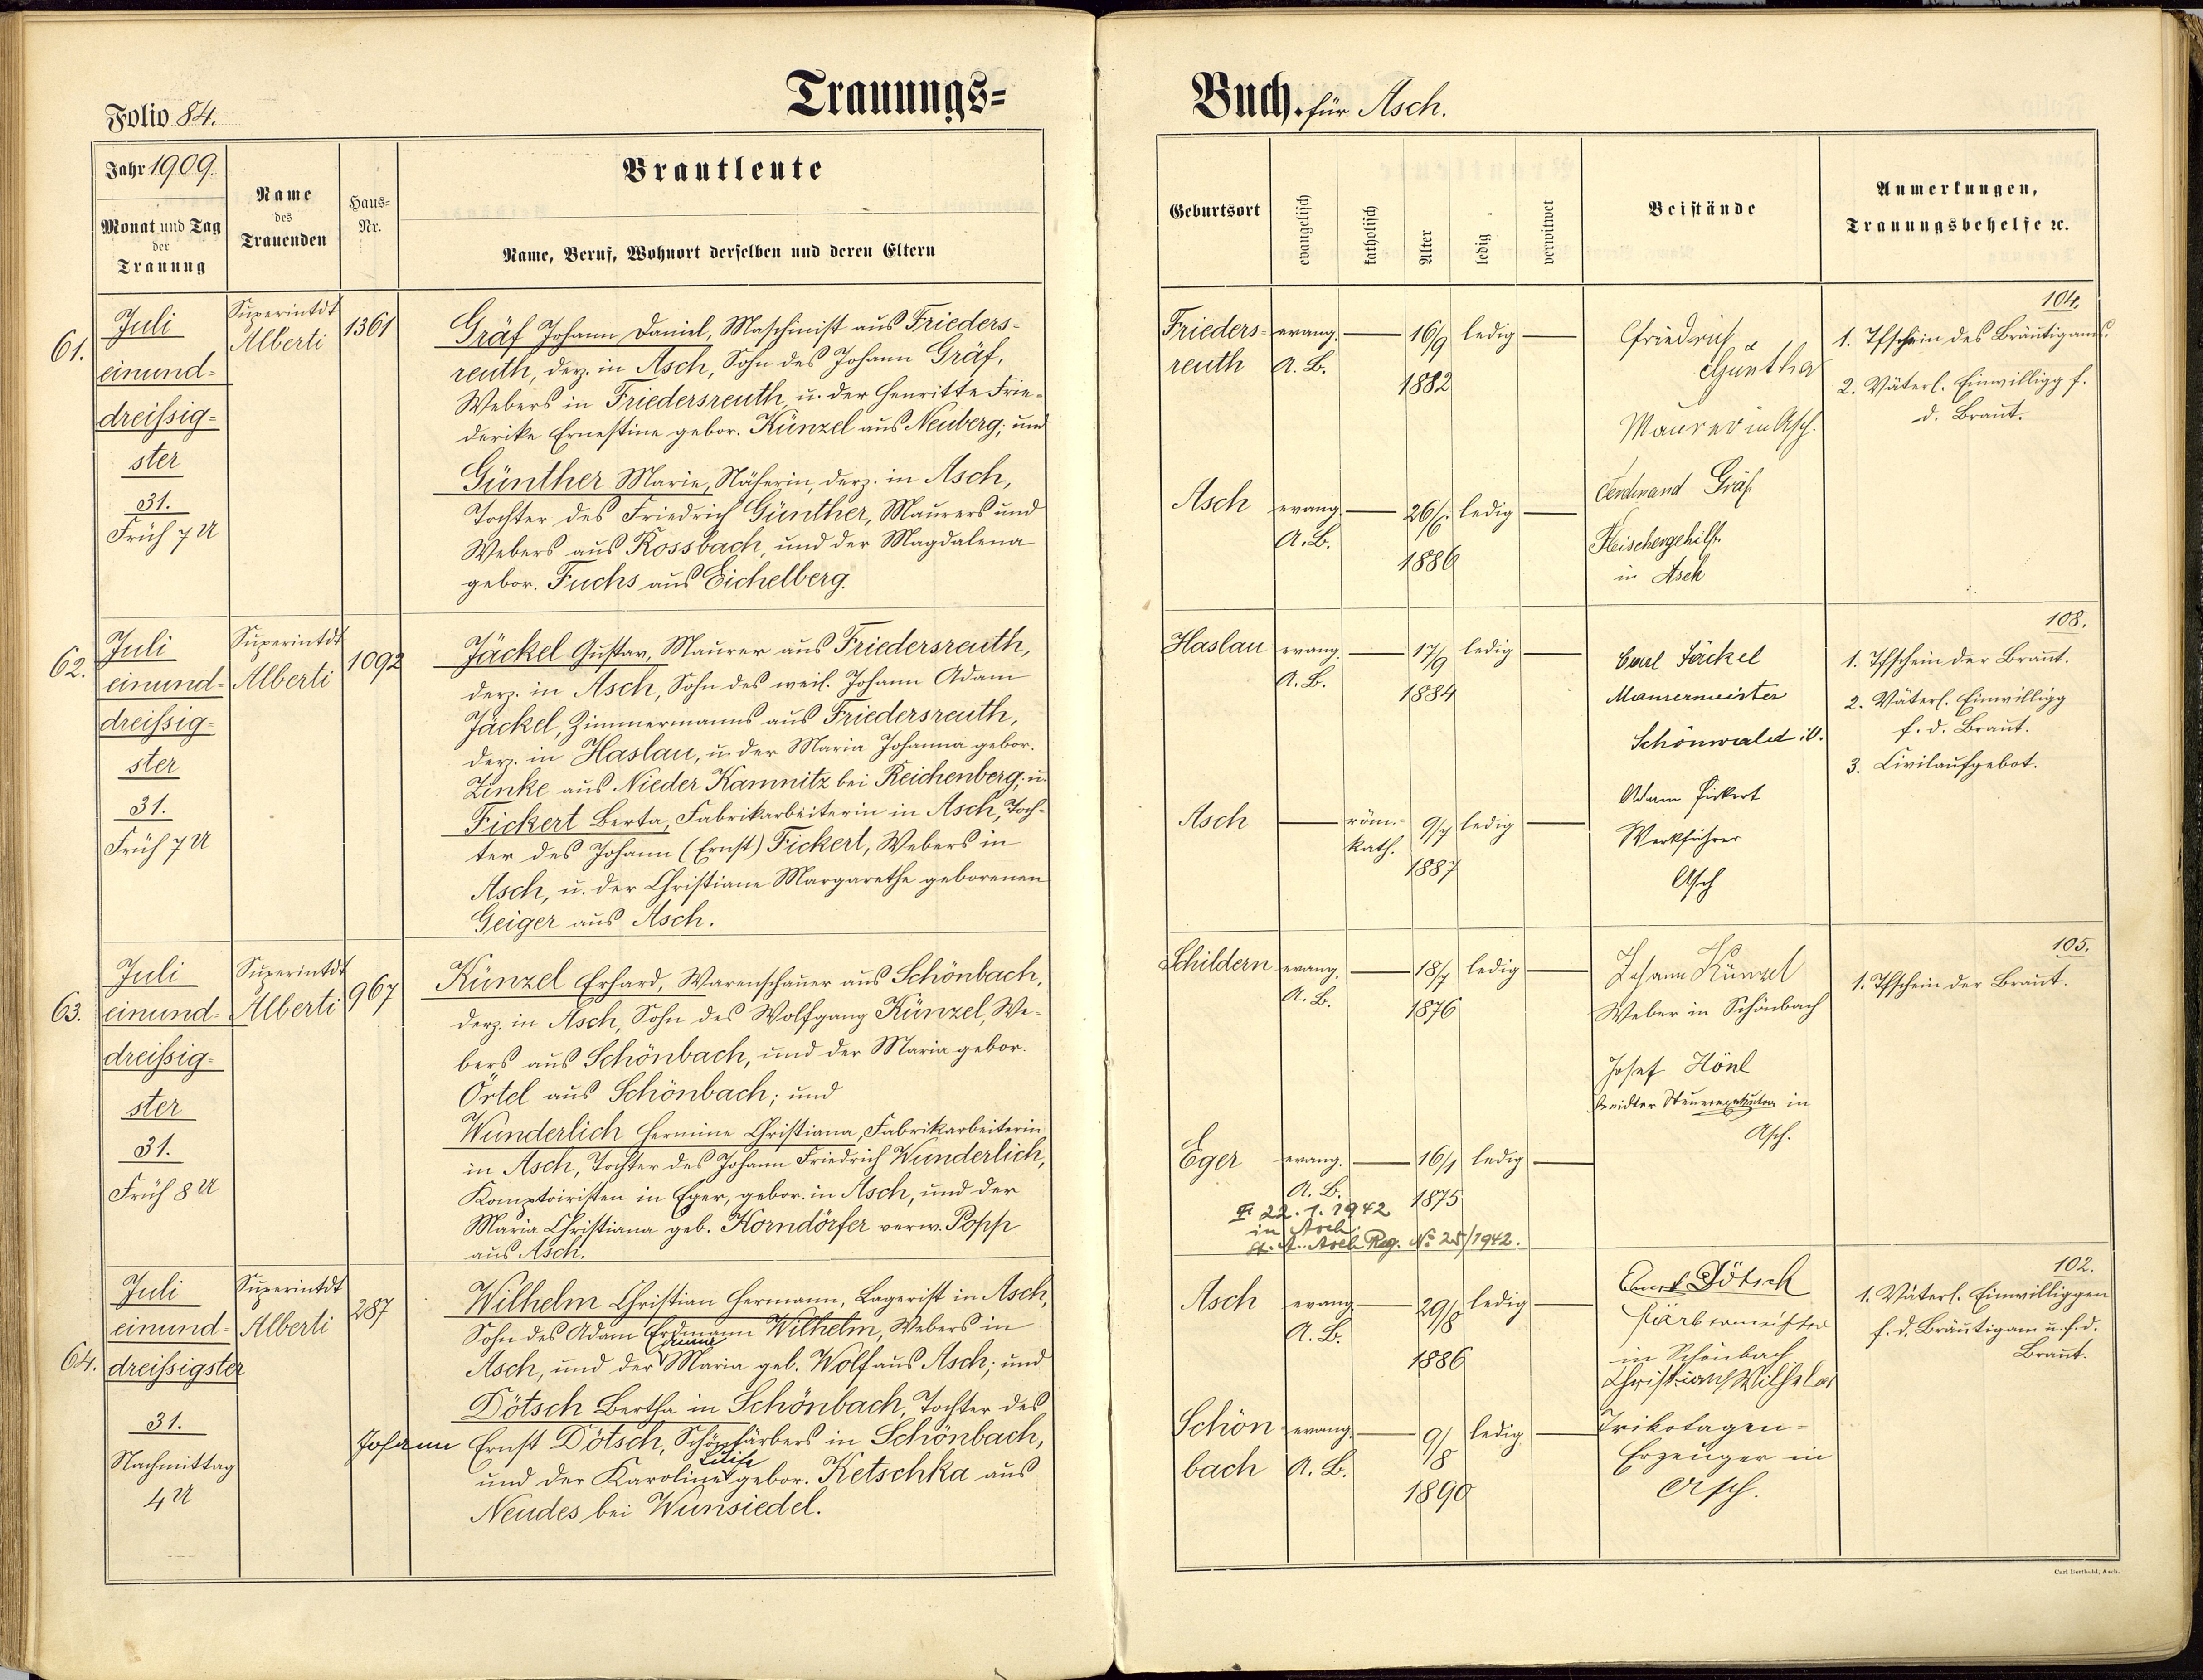 Folio 84.
Trauungs=
Jahr 1909.
Monat und Tag
der
Trauung
Name
des
Trauenden
Haus=
Nr.
Brautleute
Name, Beruf, Wohnort derselben und deren Eltern
61.
Juli
einund=
dreissig=
ster
31.
Früh 7 U
Superintdt
Alberti
1361
Gräf Johann Daniel, Maschinist aus Frieders=
reuth, derz. in Asch, Sohn des Johann Gräf,
Webers in Friedersreuth, u. der Henritte Frie=
derike Ernestine gebor. Künzel aus Neuberg; und
Günther Marie, Näherin, derz. in Asch,
Tochter des Friedrich Günther, Maurers und
Webers aus Rossbach, und der Magdalena
gebor. Fuchs aus Eichelberg.
62.
Juli
einund=
dreissig=
ster
31.
Früh 7 U
Superintdt
Alberti
1092
Jäckel Gustav, Maurer aus Friedersreuth,
derz. in Asch, Sohn des weil. Johann Adam
Jäckel, Zimmermanns aus Friedersreuth,
derz. in Haslau, u. der Maria Johanna gebor.
Zinke aus Nieder Kamnitz bei Reichenberg; u.
Fickert Berta, Fabrikarbeiterin in Asch, Toch=
ter des Johann (Ernst) Fickert, Webers in
Asch, u. der Christiane Margarethe geborenen
Geiger aus Asch.
63.
Juli
einund=
dreissig=
ster
31.
Früh 8 U
Superintdt
Alberti
967
Künzel Erhard, Warenschauer aus Schönbach,
derz. in Asch, Sohn des Wolfgang Künzel, We=
bers aus Schönbach, und der Maria gebor.
Örtel aus Schönbach; und
Wunderlich Hermine Christiana, Fabrikarbeiterin
in Asch, Tochter des Johann Friedrich Wunderlich,
Komptoiristen in Eger, gebor. in Asch, und der
Maria Christiana geb. Korndörfer verw. Popp
aus Asch.
64.
Juli
einund=
dreissigster
31.
Nachmittag
4 U
Superintdt
Alberti
287
Wilhelm Christian Hermann, Lagerist in Asch,
Sohn des Adam Erdmann Wilhelm, Webers in
Asch, und der Maria geb. Wolf aus Asch; und
Dötsch Bertha in Schönbach, Tochter des
Johann Ernst Dötsch, Schönfärbers in Schönbach,
und der Karoline gebor. Ketschka aus
Neudes bei Wunsiedel.
Buch für Asch.
Geburtsort
evangelisch
katholisch
Alter
ledig
verwitwet
Beistände
Anmerkungen,
Trauungsbehelfe ⁊c.
Frieders=
reuth
evang.
A. B.
16/9
1882
ledig
Friedrich
Günther
Maurer in Asch.
104.
1. Tfschein des Bräutigams.
2. Väterl. Einwilligg f.
d. Braut.
Asch
evang.
A. B.
26/6.
1886
ledig
Ferdinand Gräf
Fleischergehilfe
in Asch
Haslau
evang.
A. B.
17/9
1884
ledig
Carl Jäckel
Maurermeister
Schönwald
108.
1. Tfschein der Braut.
2. Väterl. Einwilligg
f. d. Braut.
3. Civilaufgebot.
Asch
röm.=
kath.
9/7
1887
ledig
Adam Fickert
Werkführer
Asch
Schildern
evang.
A. B.
18/7
1876
ledig
Johann Künzel
Weber in Schönbach
105.
1. Tfschein der Braut.
Josef Hönl
in
Asch.
Eger
evang.
A. B.
16/1
1875
ledig
22. 1. 1942
in Asch
St. A. Asch Reg. No 25/1942.
Asch
evang.
A. B.
29/8
1886
ledig
Ernst Dötsch
Färbermeister
in Schönbach
102.
1. Väterl. Einwilliggen
f. d. Bräutigam u. f. d.
Braut.
Schön
bach
evang.
A. B.
9/8
1890
ledig
Christian Wilhelm
Trikotagen=
Erzeuger in
Asch.
Carl Berthold, Asch.